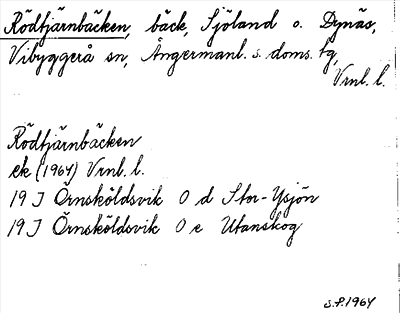 Rödtjärnbäcken, bäck, Sjöland o. Dynäs,
Vibyggerå sn, Ångermanl. s. doms. tg,
Vrnl. l.
Rödtjärnbäcken
ek (1964) Vrnl. l.
19 J Örnsköldsvik 0 d Stor-Ysjön
19 J Örnsköldsvik 0 e Utanskog
S.P. 1964